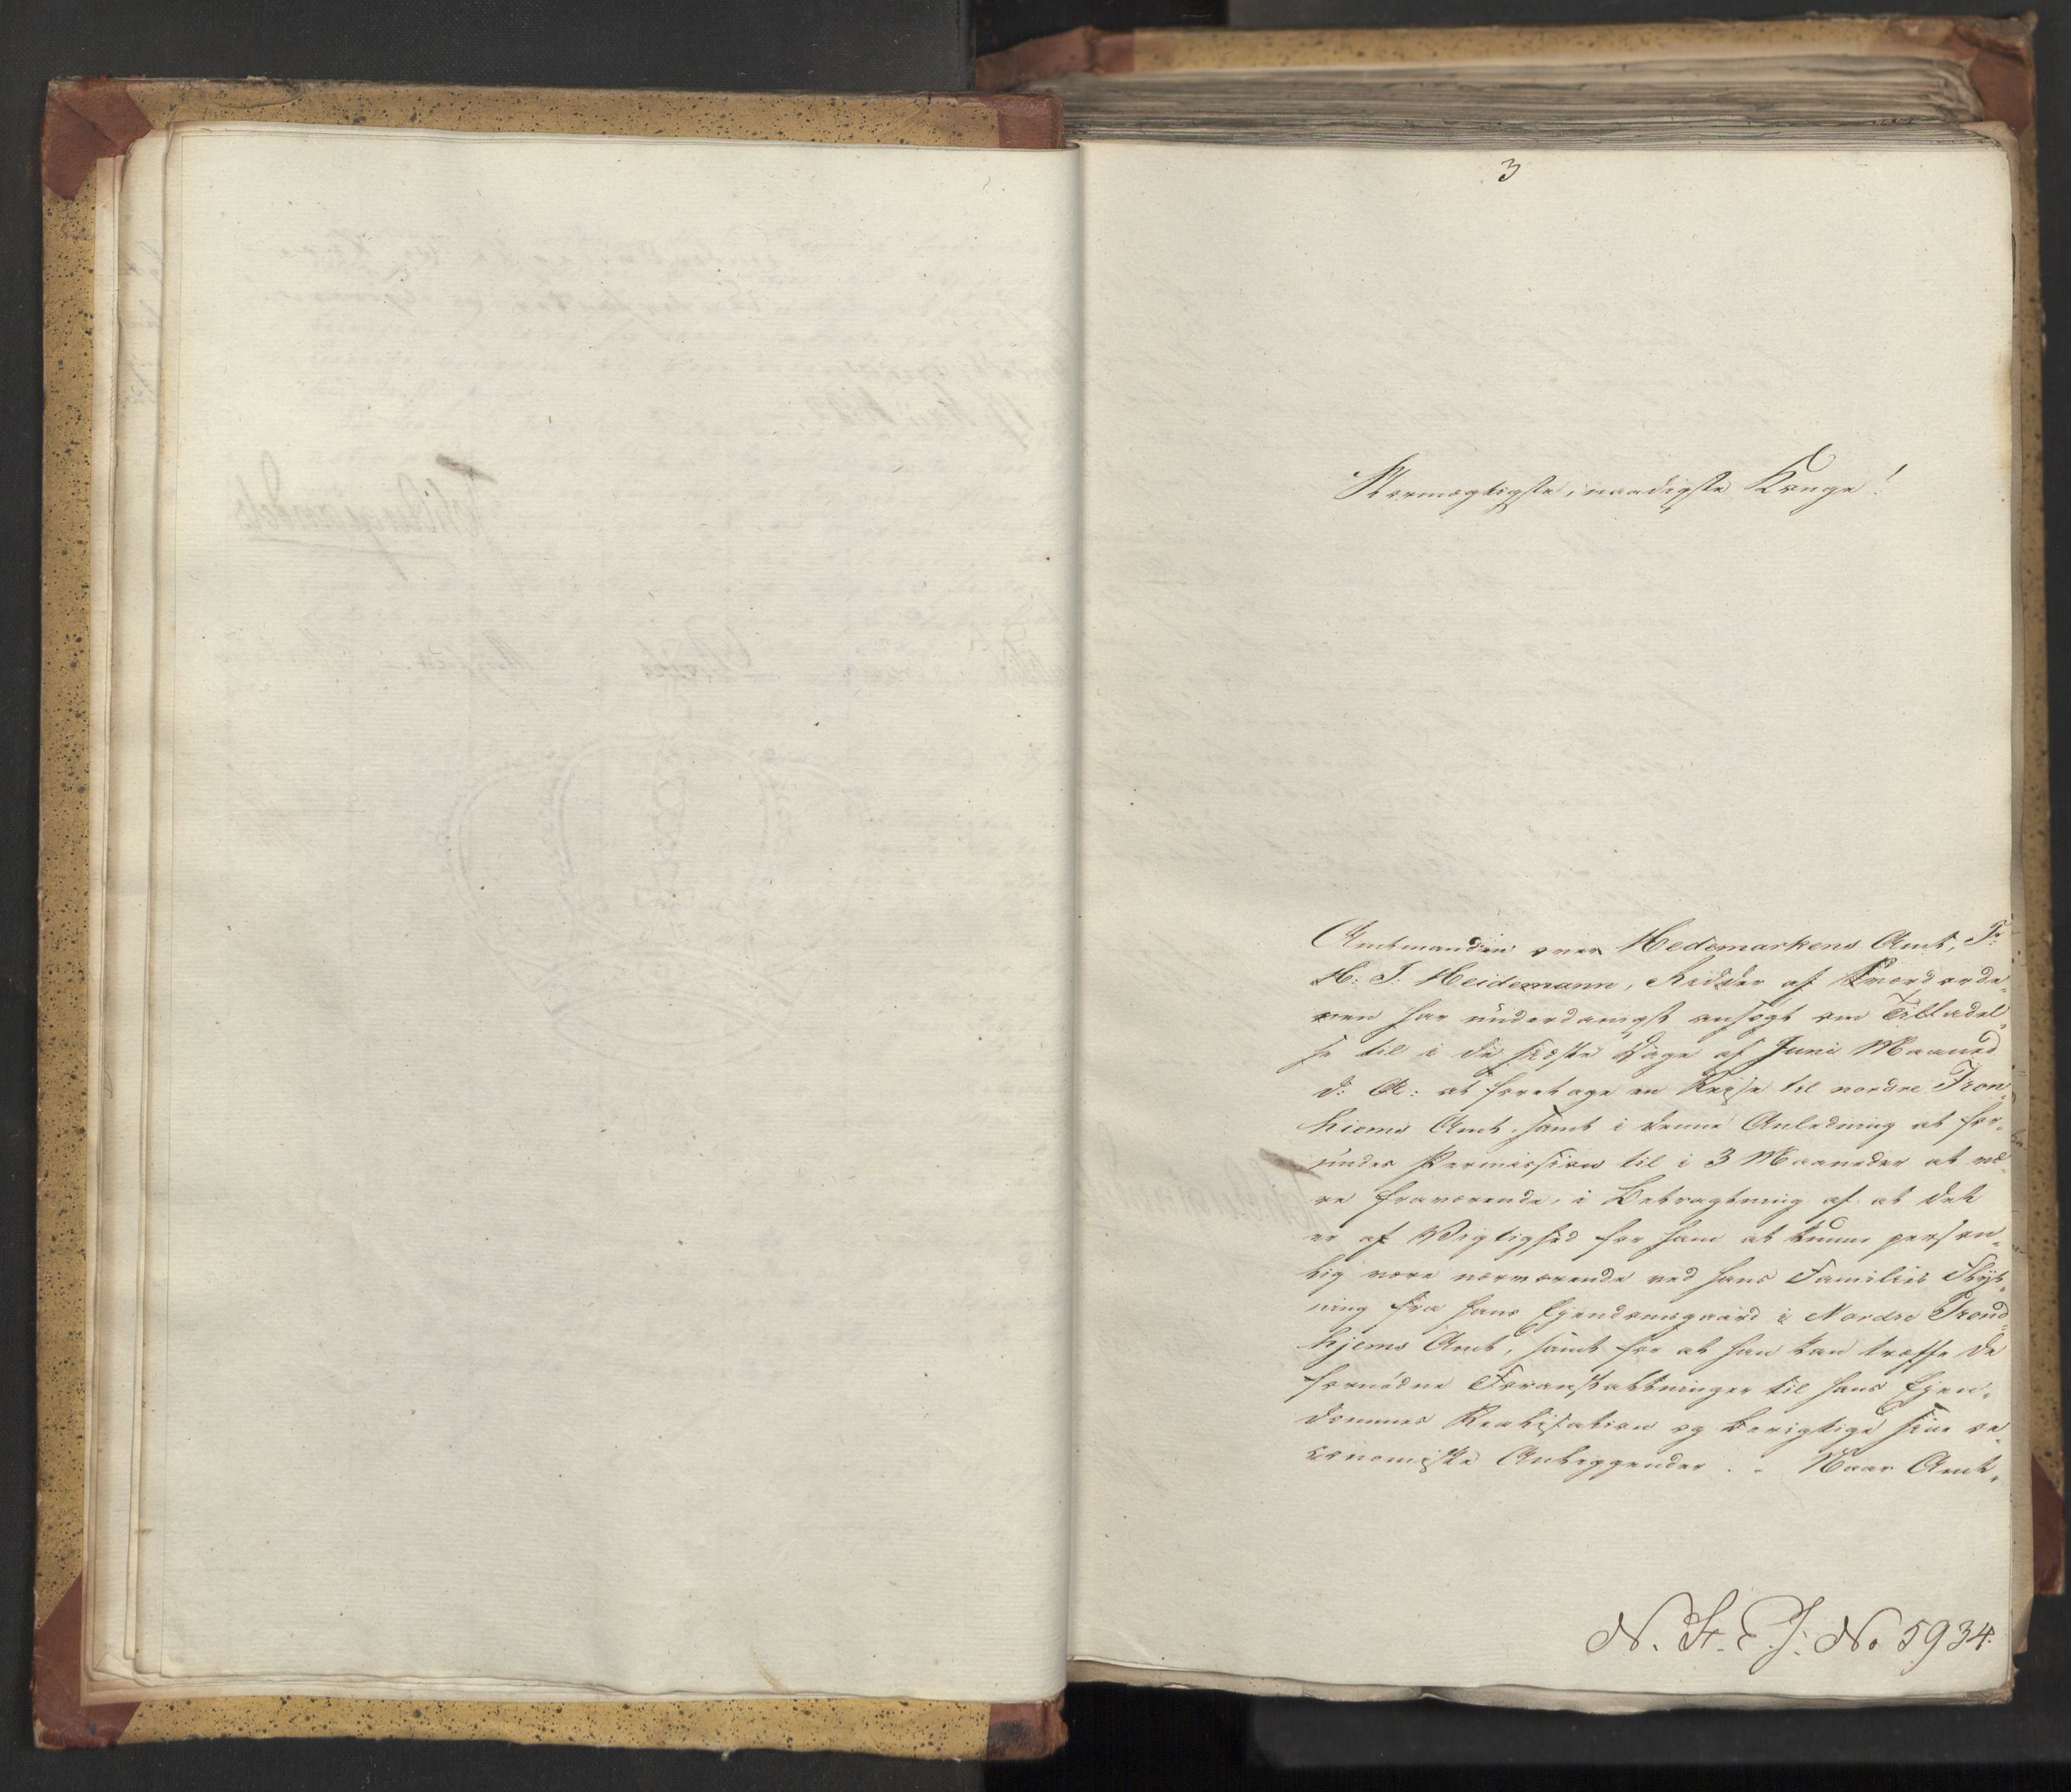 3
Stormægtigste, naadigste Konge!
Amtmanden over Hedemarkens Amt, Fr
H: J: Heidemann, Ridder af Sværdorde-
nen har underdanigst ansøgt om Tilladel-
se til i de sidste Dage af Juni Maaned
d: A: at foretage en Rejse til nordre Tron-
hiems Amt, samt i denne Anledning at for-
undes Permission til i 3 Maaneder at væ-
re fraværende, i Betragtning af at det
er af Vigtighed for ham at kunne person-
lig være nærværende ved hans Families Flyt-
ning fra hans Ejendomsgaard i Nordre Trond-
hjems Amt, samt for at han kan træffe de
fornødne Foranstaltninger til hans Ejen-
dommes Realisation og berigtige sine oe-
conomiske Anliggender. - Naar Amt-
N. St. E. J: No 5934.